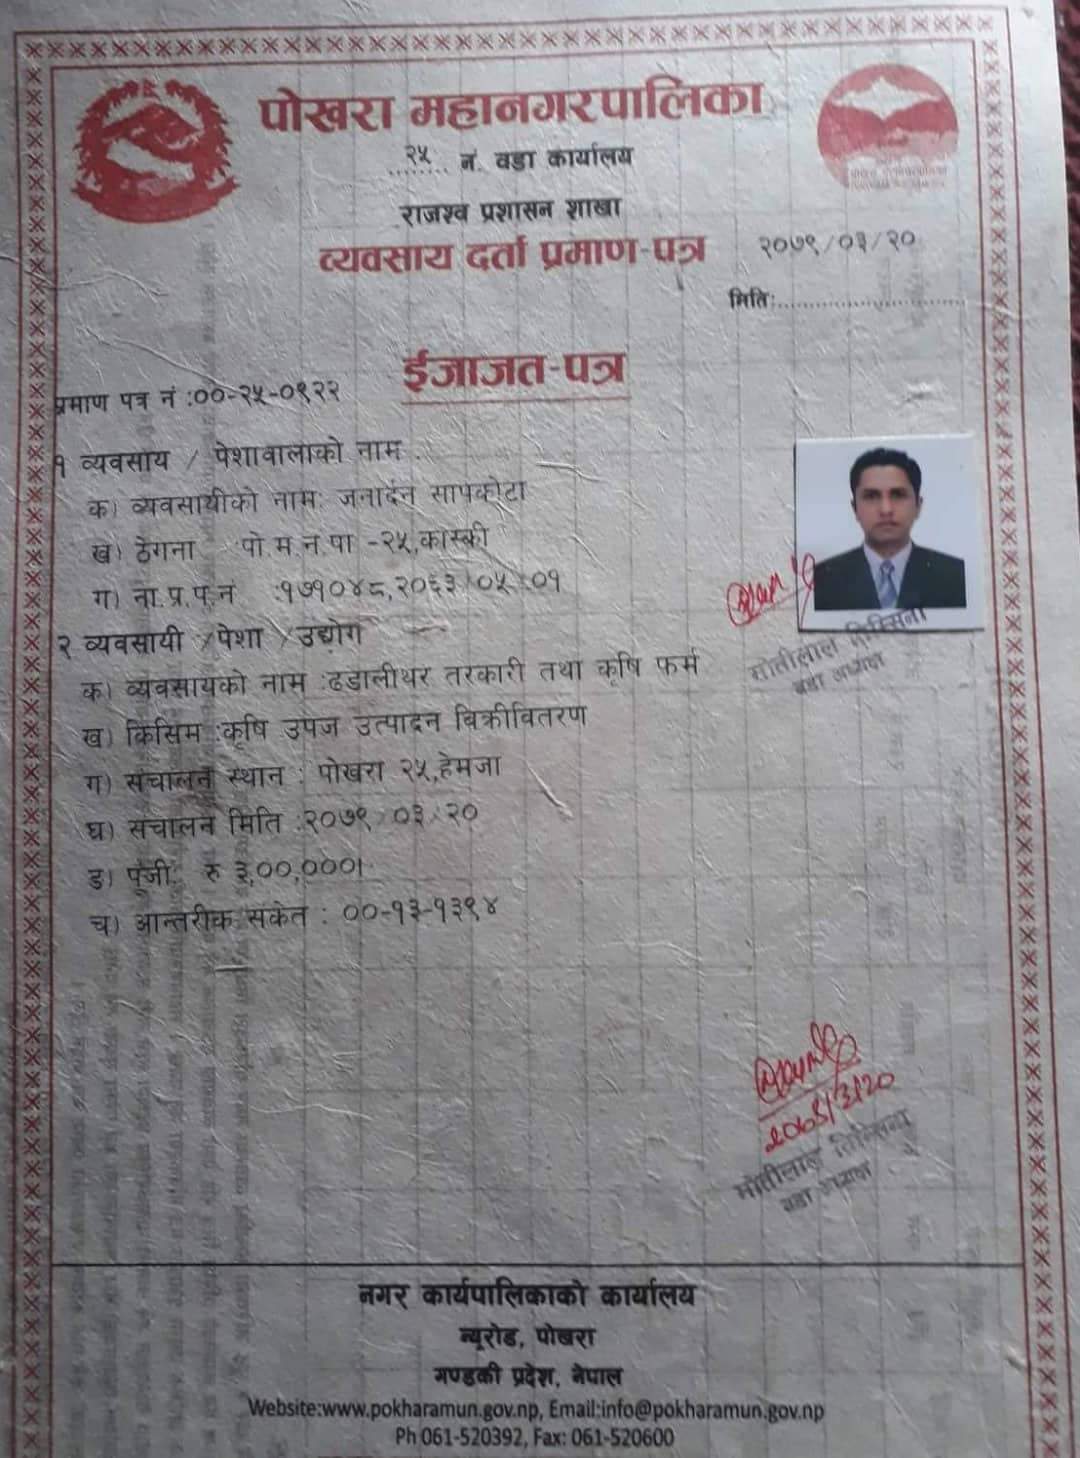 पोखरा महानगरपालिका
२५ नं. वडा कार्यालय
राजश्व प्रशासन शाखा
व्यवसाय दर्ता प्रमाण-पत्र
२०७९/०३/२०
मिति:
ईजाजत-पत्र
प्रमाण पत्र नं :००-२५-०९२२
१ व्यवसाय / पेशावालाको नाम :
क) व्यवसायीको नाम: जनार्दन सापकोटा
ख) ठेगना पो.म.न.पा -२५,कास्की
ग) ना.प्र.प.नं :१७१०४८,२०६३/०५/०१
२ व्यवसायी /पेशा /उद्योग
क) व्यवसायको नाम :ढडालीथर तरकारी तथा कृषि फर्म
ख) किसिम :कृषि उपज उत्पादन बिक्रीवितरण
ग) संचालन स्थान : पोखरा २५,हेमजा
घ) संचालन मिति :२०७९/०३/२०
ङ) पूंजी: रु ३,००,०००।
च) आन्तरीक संकेत : ००-१३-१३९४
मोतीलाल तिमिल्सिना
वडा अध्यक्ष
२०७९/3/20
मोतीलाल तिमिल्सिना
वडा अध्यक्ष
नगर कार्यपालिकाको कार्यालय
न्यूरोड, पोखरा
गण्डकी प्रदेश, नेपाल
Website:www.pokharamun.gov.np, Email:info@pokharamun.gov.np
Ph 061-520392, Fax: 061-520600